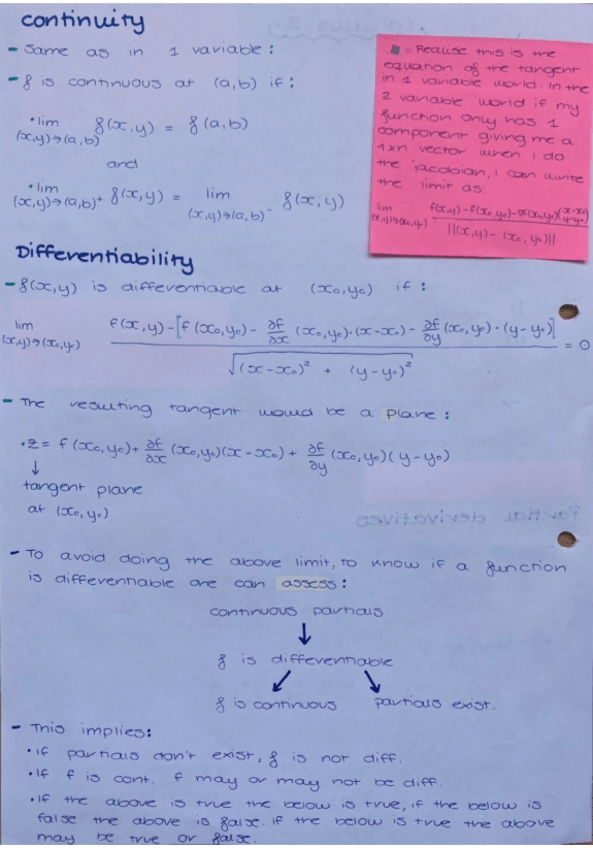 continuity
- Same as in 1 variable:
- f is continuous at (a,b) if:
• lim f(x,y) = f(a,b)
(x,y)→(a,b)
and
• lim f(x,y) = lim f(x,y)
(x,y)→(a,b)⁺ (x,y)→(a,b)⁻
= Realise this is the
equation of the tangent
in 1 variable world. In the
2 variable world if my
function only has 1
component giving me a
1xn vector when I do
the jacobian, I can write
the limit as:
lim f(x,y)-f(x₀,y₀)-∇f(x₀,y₀)(x-x₀ y-y₀)
(x,y)→(x₀,y₀) ||(x,y) - (x₀, y₀)||
Differentiability
- f(x,y) is differentiable at (x₀,y₀) if:
lim f(x,y)-[f(x₀,y₀)- ∂f/∂x (x₀,y₀)·(x-x₀) - ∂f/∂y (x₀,y₀)·(y-y₀)] = 0
(x,y)→(x₀,y₀) √(x-x₀)² + (y-y₀)²
- The resulting tangent would be a plane:
• z = f(x₀,y₀)+ ∂f/∂x (x₀,y₀)(x-x₀) + ∂f/∂y (x₀,y₀)(y-y₀)
↓
tangent plane
at (x₀,y₀)
Partial derivatives
- To avoid doing the above limit, to know if a function
is differentiable one can assess:
continuous partials
↓
f is differentiable
↙ ↘
f is continuous partials exist.
- This implies:
• If partials don't exist, f is not diff.
• If f is cont. f may or may not be diff.
• If the above is true the below is true, if the below is
false the above is false. if the below is true the above
may be true or false.